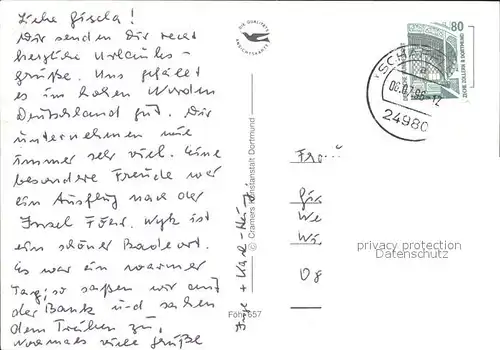 Liebe Gisela!
Wir senden Dir recht
herzliche Urlaubs-
grüße. Uns gefällt
es im hohen Norden
Deutschland gut. Wir
unternehmen wie
immer sehr viel. Eine
besondere Freude war
ein Ausflug nach der
Insel Föhr. Wyk ist
ein schöner Badeort.
Es war ein warmer
Tag; so saßen wir auf
der Bank und sahen
dem Treiben zu.
Nochmals viele Grüße
Inge + Karl-Heinz
DIE QUALITÄTS
ANSICHTSKARTE
© Cramers Kunstanstalt Dortmund
Föhr 657
80
DEUTSCHE BUNDESPOST
ZECHE ZOLLERN II DORTMUND
SCHAF
a
-12
24980
Fr
Gis
We
Wi
Og
privacy protection
Datenschutz